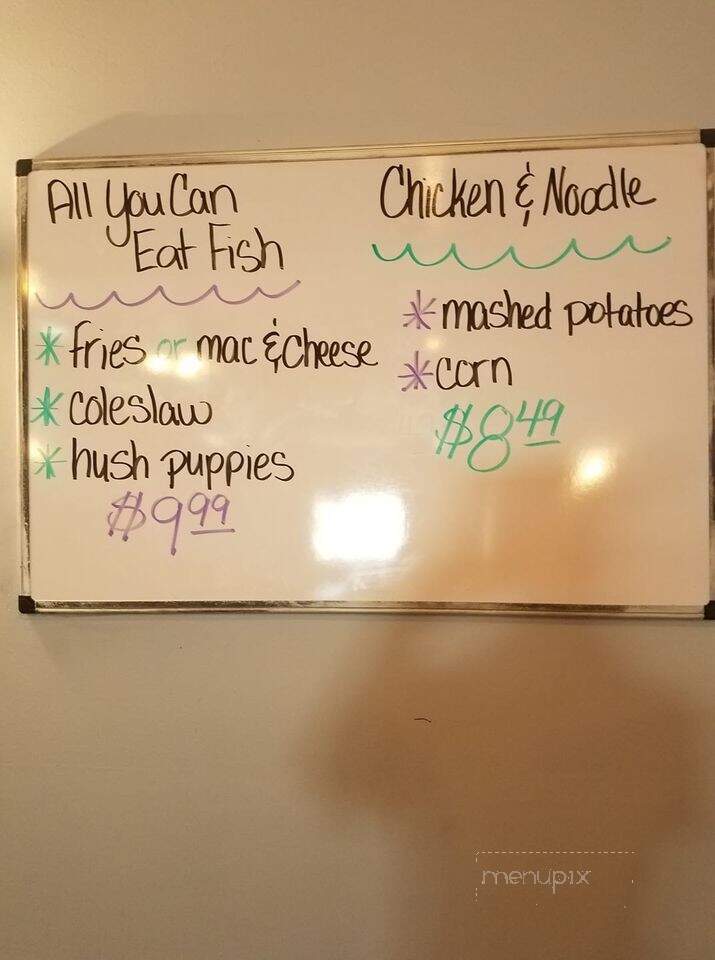 All You Can
Eat Fish
* fries or mac & cheese
* coleslaw
* hush puppies
$9.99
Chicken & Noodle
* mashed potatoes
* corn
$8.49
menupix